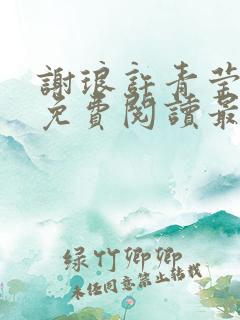 謝琅許青莹
免費閱讀最
绿竹卿卿
未经同意禁止转载